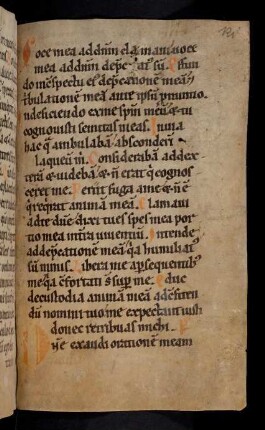 Voce mea addnm clamaui uoce
mea addnm depcatˀ sū. Effun
do inc̄spectu ei dep̄cationē meā
tribulationē meā ante ipsū pnuntio.
Indeficiendo exme spm̄ meū & tu
cognouisti semitas meas. Inuia
hac q̄ ambulabā absconderunt
laqueū m̄. Considerabā addex
terā & uidebā & n̄ erat q̄ cognos
ceret me. Perit fuga a me & n̄ ē
q̄ reqrat animā meā. Clamaui
adte dn̄e dixi tu es spes mea por
tio mea int̄ra uiuentiū. Intende
addep̄cationē meā q̄a humiliatˀ
sū nimis. Libera me apsequentibˀ
me q̄a c̄fortati s̄ sup me. Educ
decustodia animā meā adc̄fiten
dū nomini tuo me expectant iusti
donec retribuas michi.
Dn̄e exaudi orationē meam